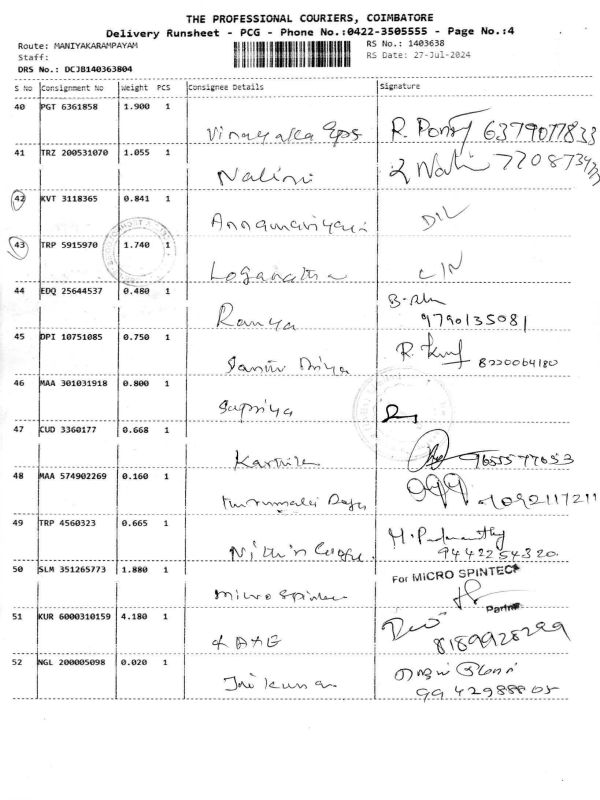 THE PROFESSIONAL COURIERS, COIMBATORE
Delivery Runsheet - PCG - Phone No.:0422-3505555 - Page No.:4
Route: MANIYAKARAMPAYAM
RS No.: 1403638
Staff:
RS Date: 27-Jul-2024
DRS No.: DCJB140363804
S No Consignment No Weight PCS Consignee Details Signature
40 PGT 6361858 1.900 1
Vinayaka Eps R. Pon 6379077833
41 TRZ 200531070 1.055 1
Nalini
42 KVT 3118365 0.841 1
D/L
43 TRP 5915970 1.740 1
Loganatha
44 EDQ 25644537 0.480 1
Ramya 9790135081
45 DPI 10751085 0.750 1
Priya 8220064180
46 MAA 301031918 0.800 1
Supriya
47 CUD 3360177 0.668 1
9655577653
48 MAA 574902269 0.160 1
49 TRP 4560323 0.665 1
Nithin 9442254320
50 SLM 351265773 1.880 1
For MICRO SPINTECH
Micro Spintec
Partner
51 KUR 6000310159 4.180 1
8189928299
52 NGL 200005098 0.020 1
Jai Kumar